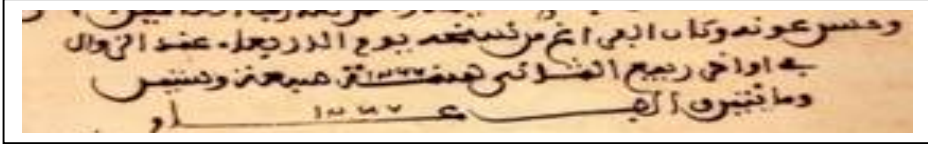 وحسن عونه وكان البراغ من نسخه يوم الاربعاء عند الزوال
في اواخر ربيع الثاني سنة ١٢٦٧ سبعة وستين
ومائتين والف ١٢٦٧